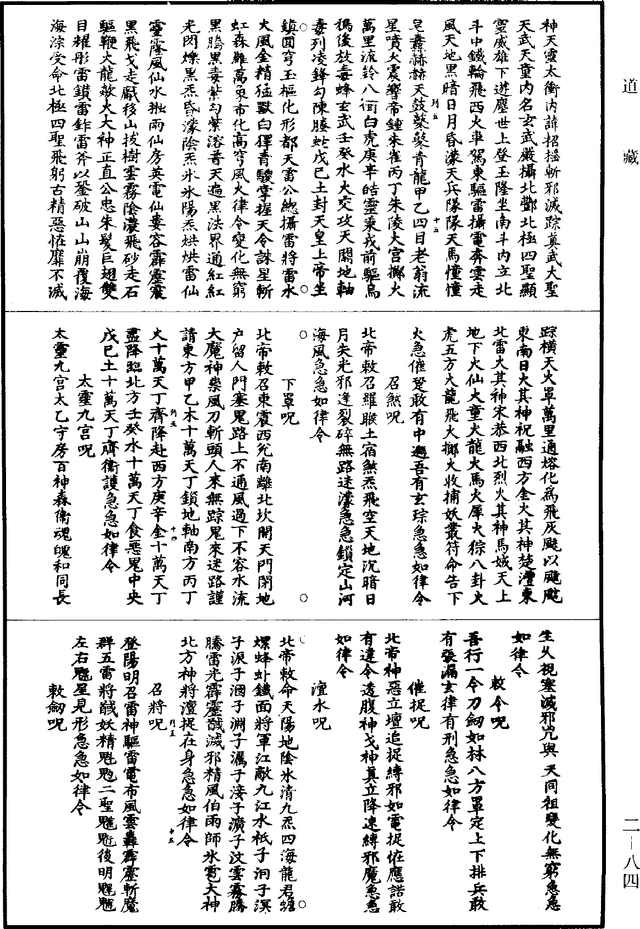 道藏
神天靈太衝內諱招搖斬邪滅踪真武大聖
天武天童內名玄武嚴攝北酆北極四聖顯
靈威雄下遊塵世上登玉隆坐南斗內立北
斗中鐵輪飛西火車駕東驅雷攝電奔雲走
風天地黑暗日月昏濛天兵隊隊天馬憧憧
皂纛赫赫天鼓鼕鼕青龍甲乙四目老翁流
星噴火震響帝鍾朱雀丙丁朱陵大宮擲火
萬里流鈴八衝白虎庚辛皓靈秉戎前驅烏
鴉後放毒蜂玄武壬癸水火交攻天關地軸
毒列凌鋒勾陳螣蛇戊己土封天皇上帝坐
鎮圓穹玉樞化形都天雷公總攝雷將雷水
火風金精猛獸白獐青驄掌握天令誅星斬
虹森羅萬象布化高穹風火律令變化無窮
黑鵬黑毒紫勾紫溶普天遍黑法界通紅紅
光閃爍黑炁昏濛陰炁氷氷陽炁烘烘雷仙
靈窿風仙水𣲖雨仙房英電仙婁容霹靂震
黑飛戈走厭移山拔樹雲霧陰濃飛砂走石
驅鞭火龍敵大大神正直公忠朱髮巨翅雙
目耀彤雷鎖雷鉡雷斧以鑿破山山崩覆海
海淙受命北極四聖飛躬古精惡怪靡不滅
踪橫天火罩萬里通熔化爲飛灰颰以颰颰
東南日火其神祝融西方金火其神楚𤅀東
北雷火其神宋恭西北烈火其神馬娀天上
地下火仙火童火龍火馬火犀火猔八卦火
虎五方火龍飛火擲火收捕妖叢符命告下
火急催㸑敢有中遏吾有玄琮急急如律令
召煞呪
北帝敕召羅睺土宿煞炁飛空天地沉暗日
月失光邪逢裂碎無路迷濛急急鎖定山河
海風急急如律令
下罩呪
北帝敕召東震西兌南離北坎開天門閉地
戶留人門塞鬼路上不通風過下不容水流
大魔神樂風刀斬頭人來無踪鬼來迷路謹
請東方甲乙木十萬天丁鎖地軸南方丙丁
火十萬天丁齊降赴西方庚辛金十萬天丁
盡降臨北方壬癸水十萬天丁食惡鬼中央
戊己土十萬天丁齊衛護急急如律令
太靈九宮呪
太靈九宮太乙守房百神森衛魂魄和同長
生久視塞滅邪咒與天同祖變化無窮急急
如律令
敕令呪
吾行一令刀劒如林八方罩定上下排兵敢
有張漏玄律有刑急急如律令
催捉呪
北帝神惡立壇追捉縛邪如電捉怪應諾敢
有違令透腹神戈神真立降速縛邪魔急急
如律令
澶水呪
北帝敕命天陽地陰氷清九炁四海龍君蟾
螺蜂虬鐵面將軍江敵九江水袛子泂子溟
子淚子洄子淵子漏子淁子濻子汶雲霧騰
騰雷光霹靂馘滅邪精風伯雨師氷雹大神
北方神將澶捉在身急急如律令
召將呪
登陽明召雷神驅雷電布風雲轟霹靂斬魔
群五雷將馘妖精魁𩲃二聖魓𩳐後明魒魑
左右魓星見形急急如律令
敕劒呪
二－八四